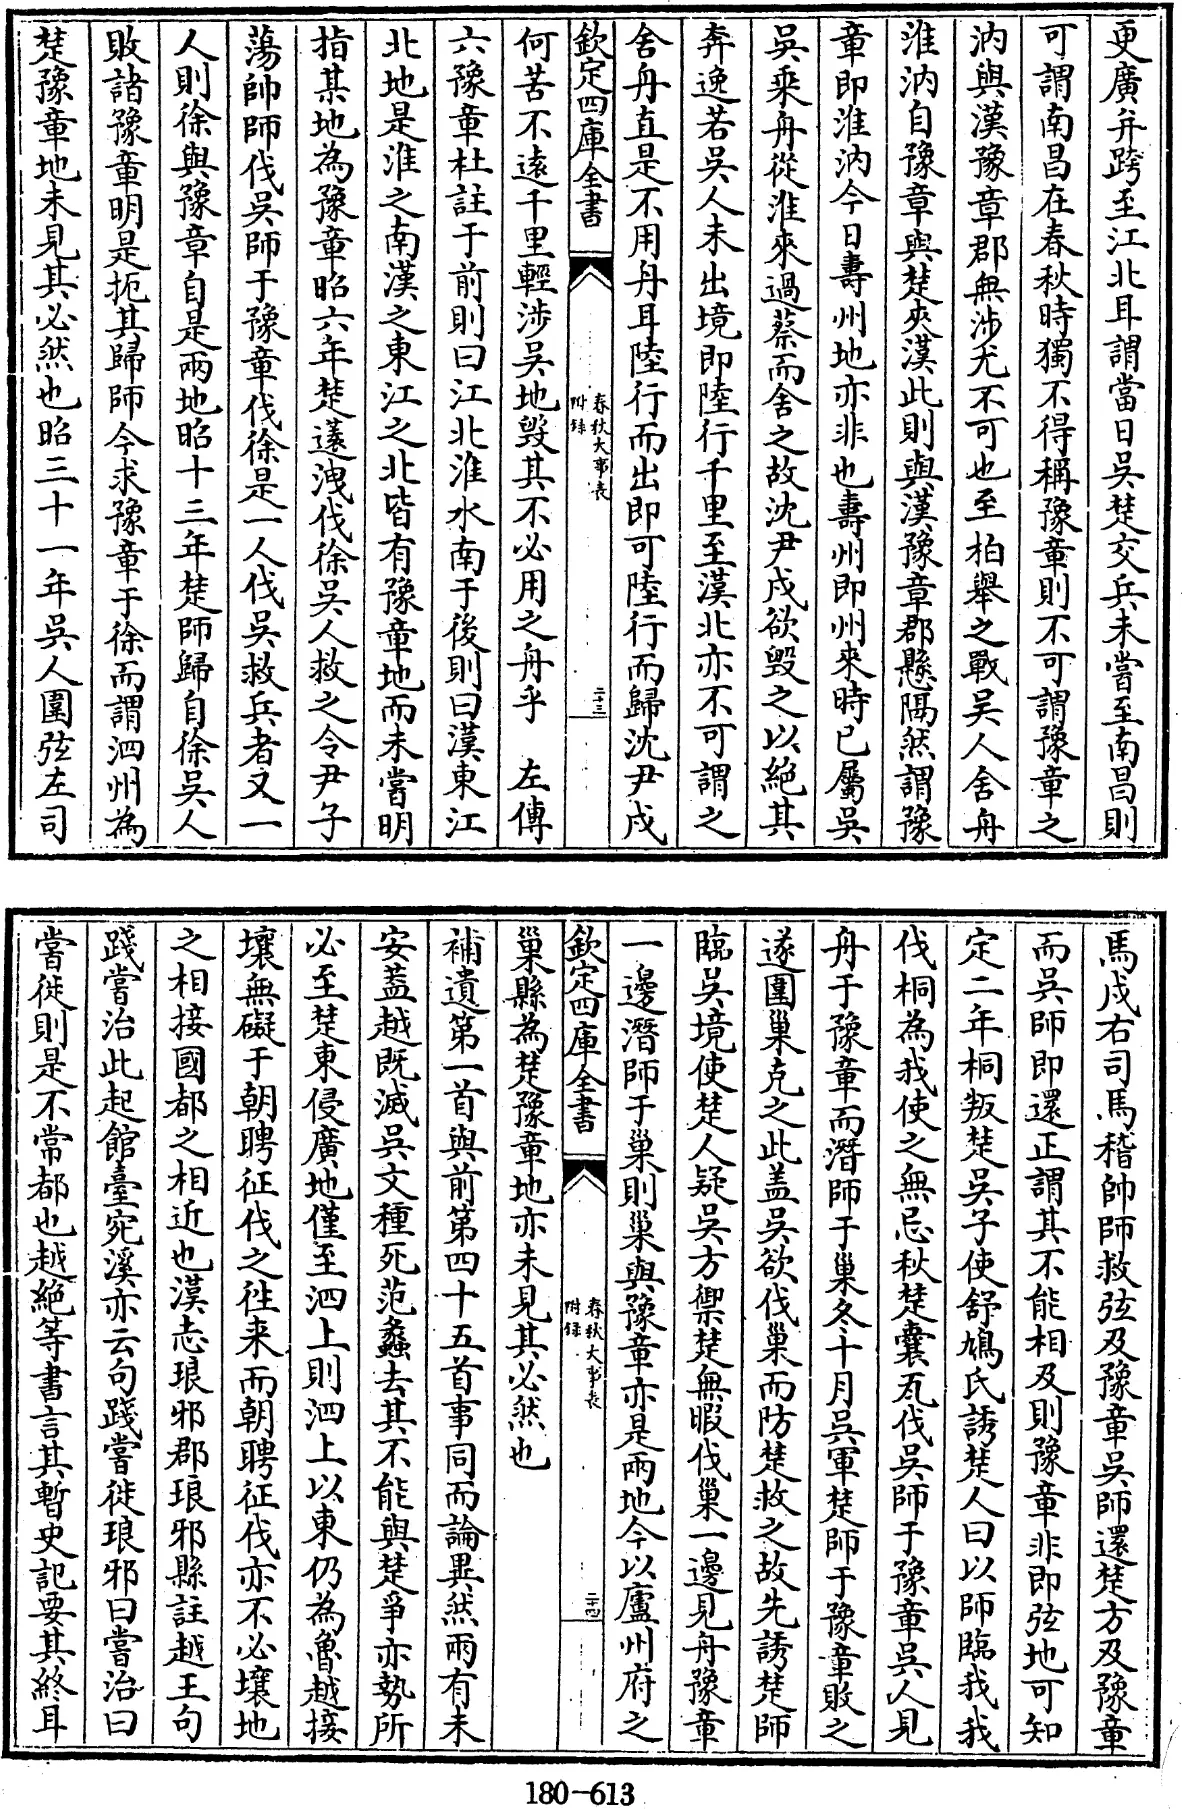 更廣弁跨至江北耳謂當日吳楚交兵未嘗至南昌則
可謂南昌在春秋時獨不得稱豫章則不可謂豫章之
汭與漢豫章郡無涉尤不可也至柏舉之戰吳人舍舟
淮汭自豫章與楚夾漢此則與漢豫章郡懸隔然謂豫
章即淮汭今日壽州地亦非也壽州即州來時已屬吳
吳乘舟從淮來過蔡而舍之故沈尹戍欲毀之以絕其
奔逸若吳人未出境即陸行千里至漢北亦不可謂之
舍舟直是不用舟耳陸行而出即可陸行而歸沈尹戍
欽定四庫全書
春秋大事表
附錄
二十三
何苦不遠千里輕涉吳地毀其不必用之舟乎　左傳
六豫章杜註于前則曰江北淮水南于後則曰漢東江
北地是淮之南漢之東江之北皆有豫章地而未嘗明
指某地為豫章昭六年楚薳洩伐徐吳人救之令尹子
蕩帥師伐吳師于豫章伐徐是一人伐吳救兵者又一
人則徐與豫章自是兩地昭十三年楚師歸自徐吳人
敗諸豫章明是扼其歸師今求豫章于徐而謂泗州為
楚豫章地未見其必然也昭三十一年吳人圍弦左司
馬戍右司馬稽帥師救弦及豫章吳師還楚方及豫章
而吳師即還正謂其不能相及則豫章非即弦地可知
定二年桐叛楚吳子使舒鳩氏誘楚人曰以師臨我我
伐桐為我使之無忌秋楚囊瓦伐吳師于豫章吳人見
舟于豫章而潛師于巢冬十月吳軍楚師于豫章敗之
遂圍巢克之此盖吳欲伐巢而防楚救之故先誘楚師
臨吳境使楚人疑吳方禦楚無暇伐巢一邊見舟豫章
一邊潛師于巢則巢與豫章亦是兩地今以廬州府之
欽定四庫全書
春秋大事表
附錄
二十四
巢縣為楚豫章地亦未見其必然也
補遺第一首與前第四十五首事同而論異然兩有未
安蓋越既滅吳文種死范蠡去其不能與楚爭亦勢所
必至楚東侵廣地僅至泗上則泗上以東仍為魯越接
壤無礙于朝聘征伐之往来而朝聘征伐亦不必壤地
之相接國都之相近也漢志琅邪郡琅邪縣註越王句
踐嘗治此起館臺宛溪亦云句踐嘗徙琅邪曰嘗治曰
嘗徙則是不常都也越絕等書言其暫史記要其終耳
180-613